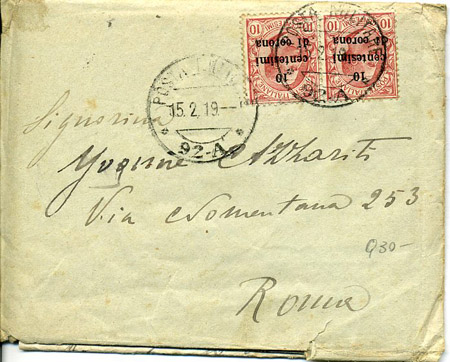 10
centesimi
di corona
10
centesimi
di corona
10
10
POSTA MILITARE
15.2.19
92-A
POSTA MILITARE
92-A
Signorina
Yvonne Azzariti
Via Nomentana 253
Q30-
Roma